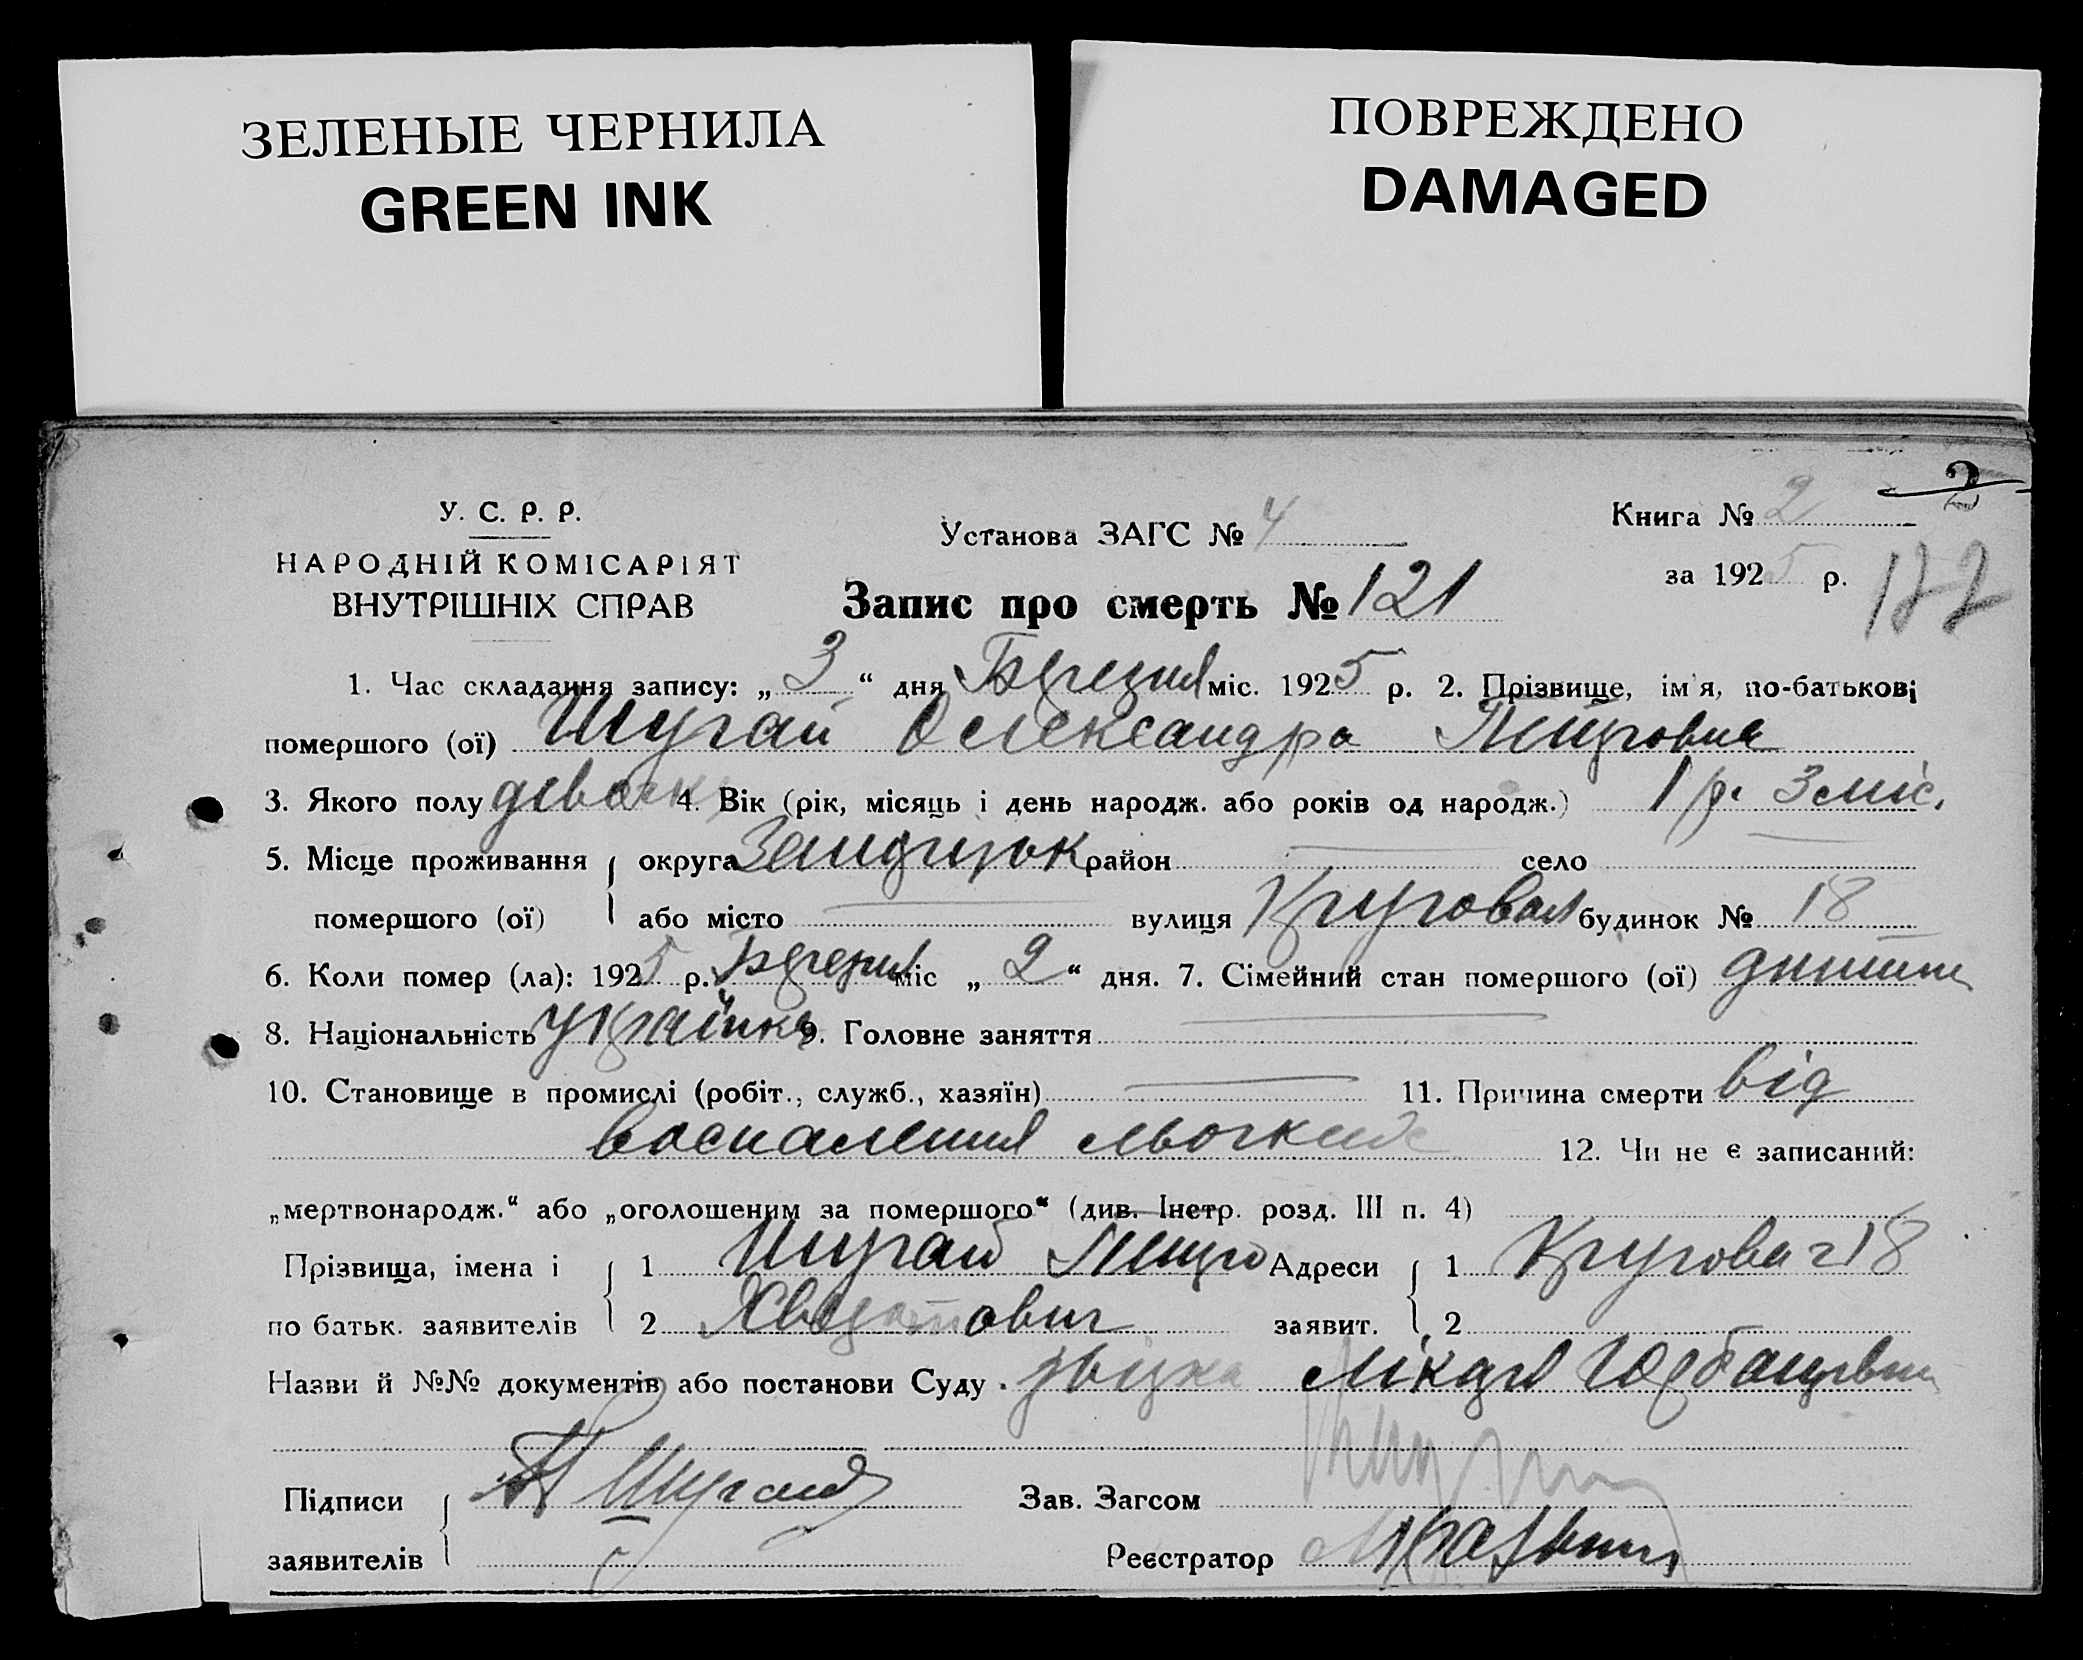 ЗЕЛЕНЫЕ ЧЕРНИЛА
GREEN INK
ПОВРЕЖДЕНО
DAMAGED
2
У. С. Р. Р.
НАРОДНІЙ КОМІСАРІЯТ
ВНУТРІШНІХ СПРАВ
Установа ЗАГС № 4
Книга № 2
за 1925 р.
Запис про смерть № 121
1. Час складання запису: „ 3 “ дня Березня міс. 1925 р. 2. Прізвище, ім'я, по-батькові
помершого (ої) Шугай Олександра Петровна
3. Якого полу 4. Вік (рік, місяць і день народж. або років од народж.) 1 р. 3 міс.
5. Місце проживання округа район село
помершого (ої) або місто вулиця Кругова будинок № 18
6. Коли помер (ла): 1925 р. Березня міс „ 2 “ дня. 7. Сімейний стан помершого (ої) дитина
8. Національність Українка 9. Головне заняття
10. Становище в промислі (робіт., служб., хазяїн) 11. Причина смерти від
воспаления льогких 12. Чи не є записаний:
„мертвонародж.“ або „оголошеним за помершого“ (див. Інстр. розд. III п. 4)
Прізвища, імена і 1 Шугай Петро Адреси 1 Кругова 18
по батьк. заявителів 2 заявит. 2
Назви й №№ документів або постанови Суду лікаря
Підписи П Шугай Зав. Загсом
заявителів Реєстратор